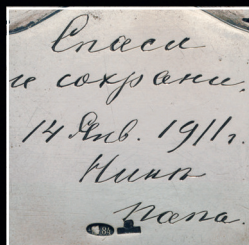 Спаси
и сохрани.
14 Янв. 1911 г.
Нинѣ
папа.
84